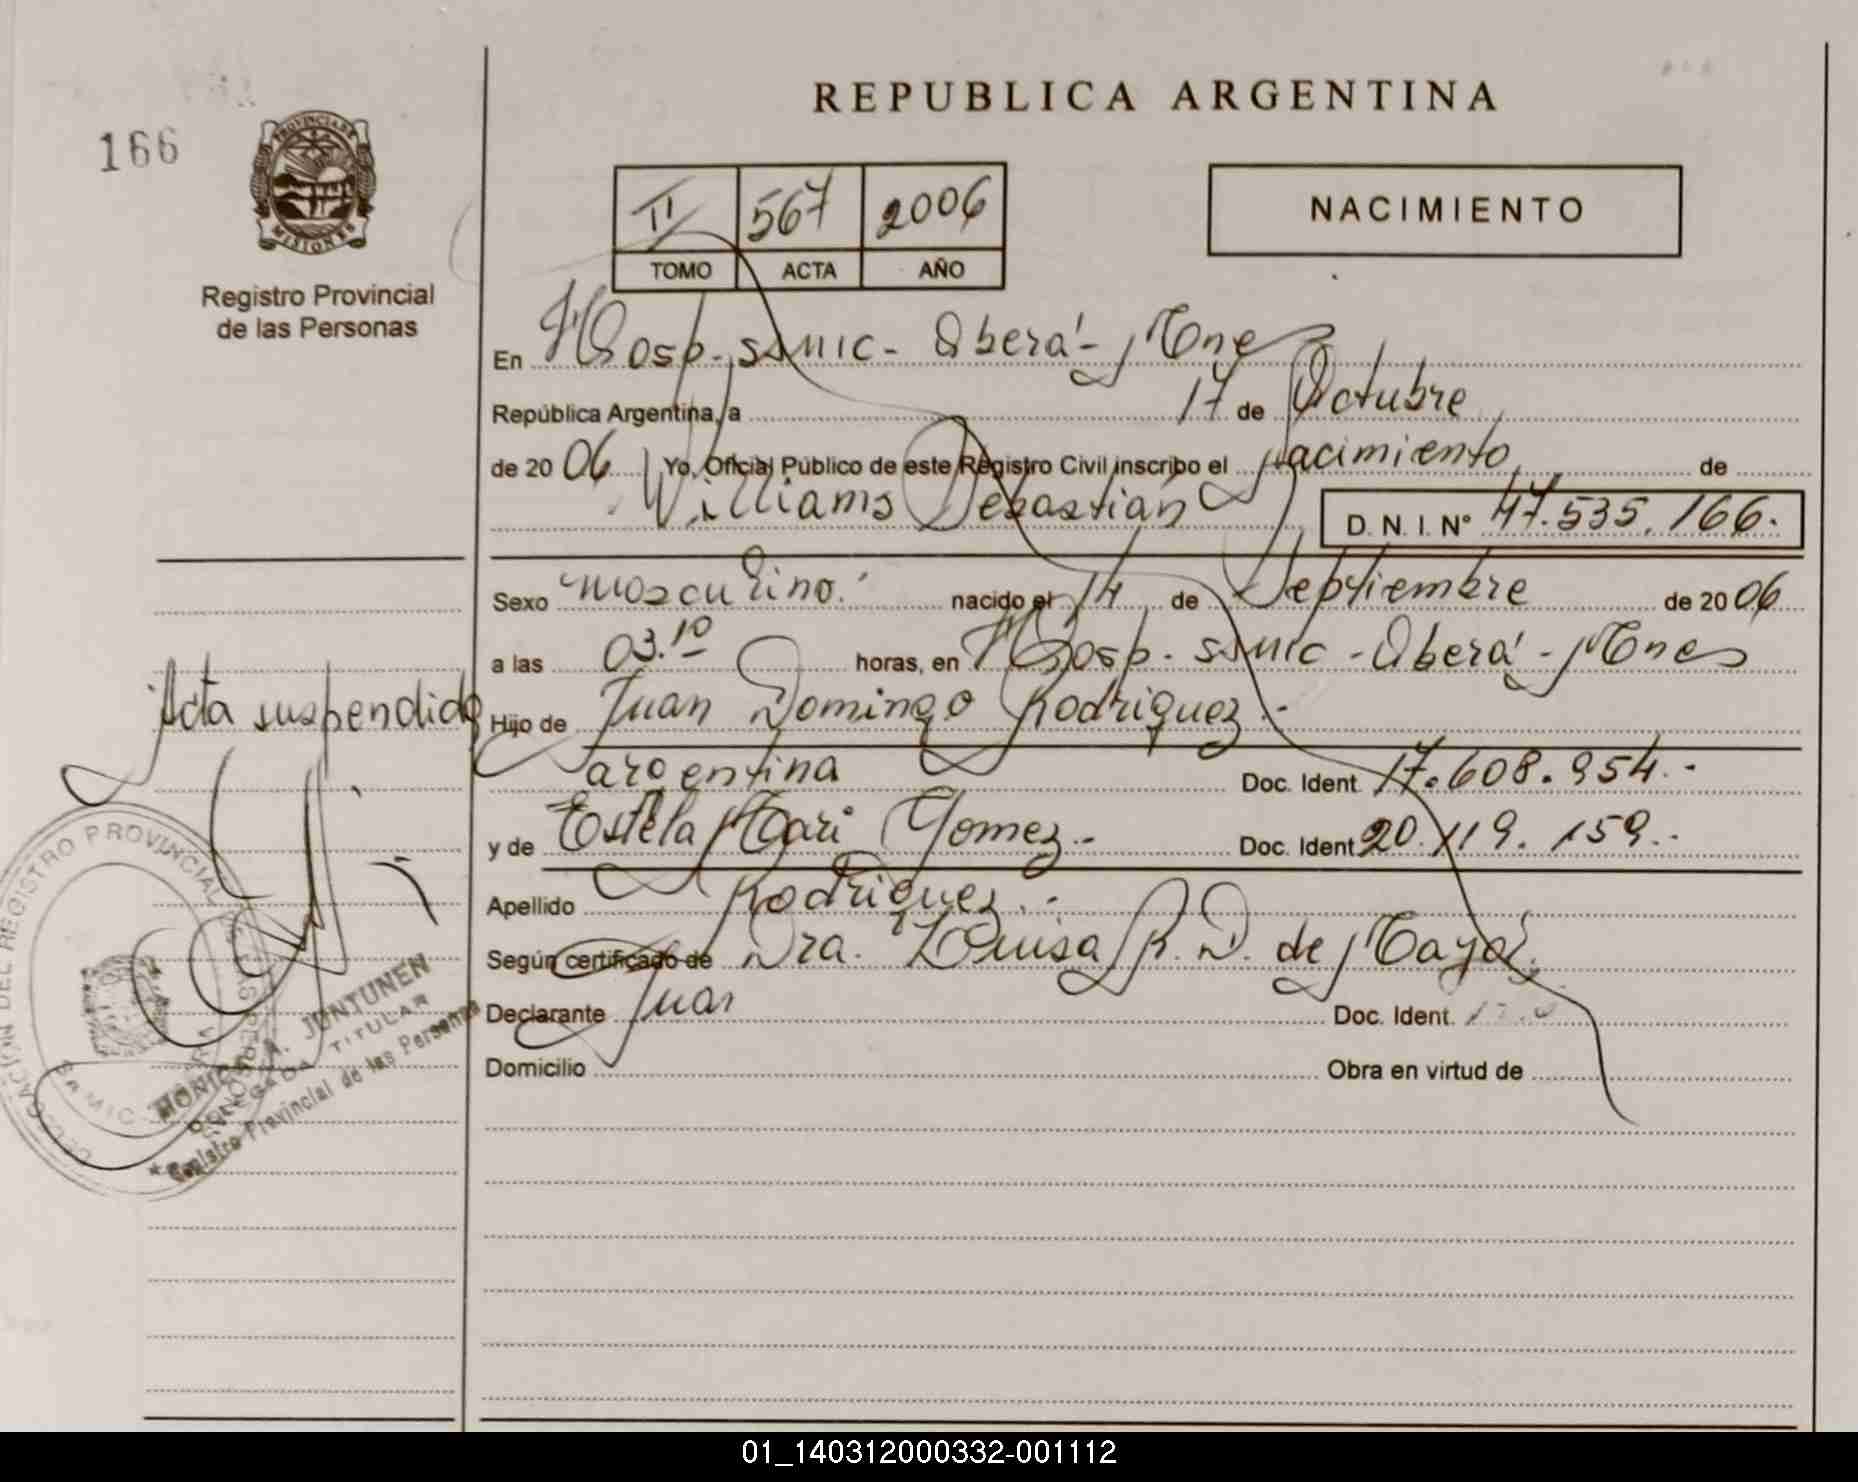 REPUBLICA ARGENTINA
166
PROVINCIA DE
MISIONES
Registro Provincial
de las Personas
II 567 2006
TOMO ACTA AÑO
NACIMIENTO
En Hosp. SAMIC - Oberá - Mnes
República Argentina, a 17 de Octubre
de 2006 Yo, Oficial Público de este Registro Civil inscribo el Nacimiento de
Williams Sebastián D. N. I. N° 47.535.166.
Sexo masculino. nacido el 14 de Septiembre de 2006
a las 03.10 horas, en Hosp. SAMIC - Oberá - Mnes
Acta suspendida
Hijo de Juan Domingo Rodriguez.-
argentina Doc. Ident. 17.608.954.-
y de Estela Mari Gomez.- Doc. Ident 20.119.159.-
Apellido Rodriguez.-
Según certificado de Dra. Luisa R. D. de
Declarante Juan Doc. Ident.
Domicilio Obra en virtud de
DELEGACION DEL REGISTRO PROVINCIAL DE LAS PERSONAS
SAMIC
MONICA A. JUNTUNEN
DELEGADA TITULAR
Registro Provincial de las Personas
01_140312000332-001112